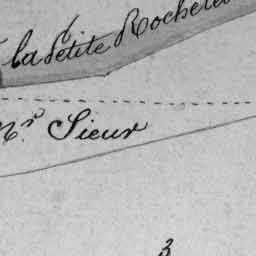 la Petite Rochele
Mr. Sieur
3